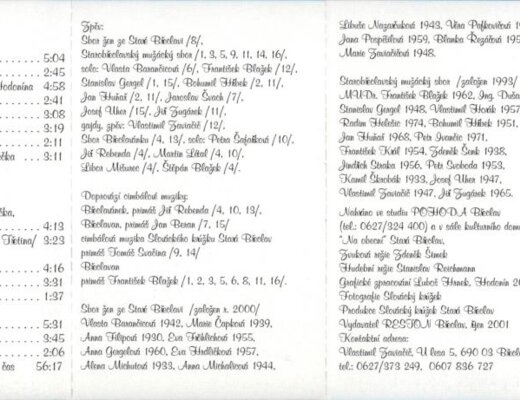 . . . . . 5:04
. . . . . 2:45
Hodonína 4:58
. . . . . 2:41
. . . . . 3:08
. . . . . 3:19
. . . . . 2:11
3:11
. . . . . 4:13
Třetina/ 3:23
. . . . . 4:16
. . . . . 3:31
. . . . . 1:37
. . . . . 5:31
. . . . . 3:45
. . . . . 2:06
čas 56:17
Zpěv:
Sbor žen ze Staré Břeclavi /8/,
Starobřeclavský mužácký sbor /1, 3, 5, 9, 11, 14, 16/,
solo: Vlasta Barančicová /6/, František Blažek /12/,
Stanislav Gergel /1, 15/, Bohumil Hlíbek /2, 11/,
Jan Huňař /2, 11/, Jaroslav Švach /7/,
Josef Uher /15/, Jiří Zugárek /4/,
gajdy, zpěv: Vlastimil Zavřačič /12/,
Sbor Břeclavánku /4, 13/, solo: Petra Šafaříková /10/,
Jiří Rebenda /4/, Martin Létal /4, 10/,
Libor Mišurec /4/, Štěpán Blažek /4/,
Doprovází cimbálové muziky:
Břeclavánek, primáš Jiří Rebenda /4, 10, 13/,
Břeclavan, primáš Jan Beran /7, 15/
cimbálová muzika Slováckého krúžku Staré Břeclav
primáš Tomáš Svačina /9, 14/
Břeclavan
primáš František Blažek /1, 2, 3, 5, 6, 8, 11, 16/.
Sbor žen ze Staré Břeclavi /založen r. 2000/
Vlasta Barančicová 1942, Marie Čapková 1939,
Anna Filipová 1930, Eva Fröhlichová 1955,
Anna Gergelová 1960, Eva Hrdličková 1957,
Alena Michutová 1933, Anna Michalicová 1944,
Libuše 1943, Věra
Jana Pospíšilová 1959, Blanka Řezáčová
Marie Zavřačičová 1948.
Starobřeclavský mužácký sbor /založen 1993/
MUDr. František Blažek 1962, Ing.
Stanislav Gergel 1948, Vlastimil Horák
Radim Holešic 1974, Bohumil Hlíbek 1951,
Jan Huňař 1968, Petr Ivančic 1971,
František Král 1954, Zdeněk Šimek 1938,
Jindřich Straka 1956, Petr Svoboda 1953,
Kamil Škrobák 1933, Josef Uher 1947,
Vlastimil Zavřačič 1947, Jiří Zugárek 1965.
Nahráno ve studiu POHODA Břeclav
(tel.: 0627/324 400) a v sále kulturního domu
"Na obecní" Staré Břeclav.
Zvuková režie Zdeněk Šimek
Hudební režie Stanislav Reichmann
Grafické zpracování Luboš Hrnek, Hodonín
Fotografie Slovácký krúžek
Produkce Slovácký krúžek Staré Břeclav
Vydavatel RESTON Břeclav, říjen 2001
Kontaktní adresa:
Vlastimil Zavřačič, U lesa 5, 690 03
tel.: 0627/373 249, 0607 836 727